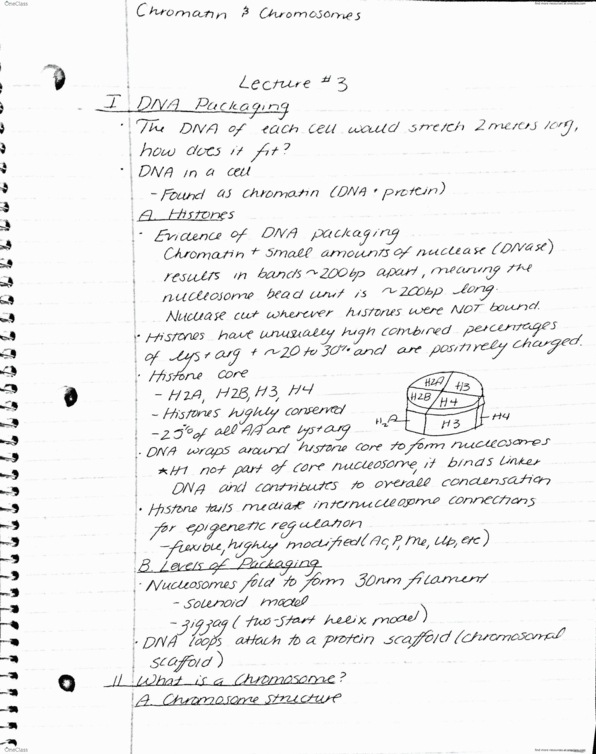 OneClass
find more resources at oneclass.com
Chromatin & Chromosomes
Lecture #3
I DNA Packaging
· The DNA of each cell would stretch 2 meters long,
how does it fit?
· DNA in a cell
- Found as chromatin (DNA · protein)
A. Histones
· Evidence of DNA packaging
Chromatin + small amounts of nuclease (DNase)
results in bands ~200bp apart, meaning the
nucleosome bead unit is ~200bp long.
Nuclease cut wherever histones were NOT bound.
· Histones have unusually high combined percentages
of lys + arg + ~20 to 30% and are positively charged.
· Histone core
- H2A, H2B, H3, H4
- Histones highly conserved
- 25% of all AA are lys + arg
H2A H3
H2B H4
H2A H3 H4
· DNA wraps around histone core to form nucleosomes
*H1 not part of core nucleosome, it binds linker
DNA and contributes to overall condensation
· Histone tails mediate internucleosome connections
for epigenetic regulation
- flexible, highly modified (Ac, P, Me, Ub, etc)
B. Levels of Packaging
· Nucleosomes fold to form 30nm filament
- solenoid model
- zigzag (two-start helix model)
· DNA loops attach to a protein scaffold (chromosomal
scaffold)
II What is a Chromosome?
A. Chromosome structure
OneClass
find more resources at oneclass.com